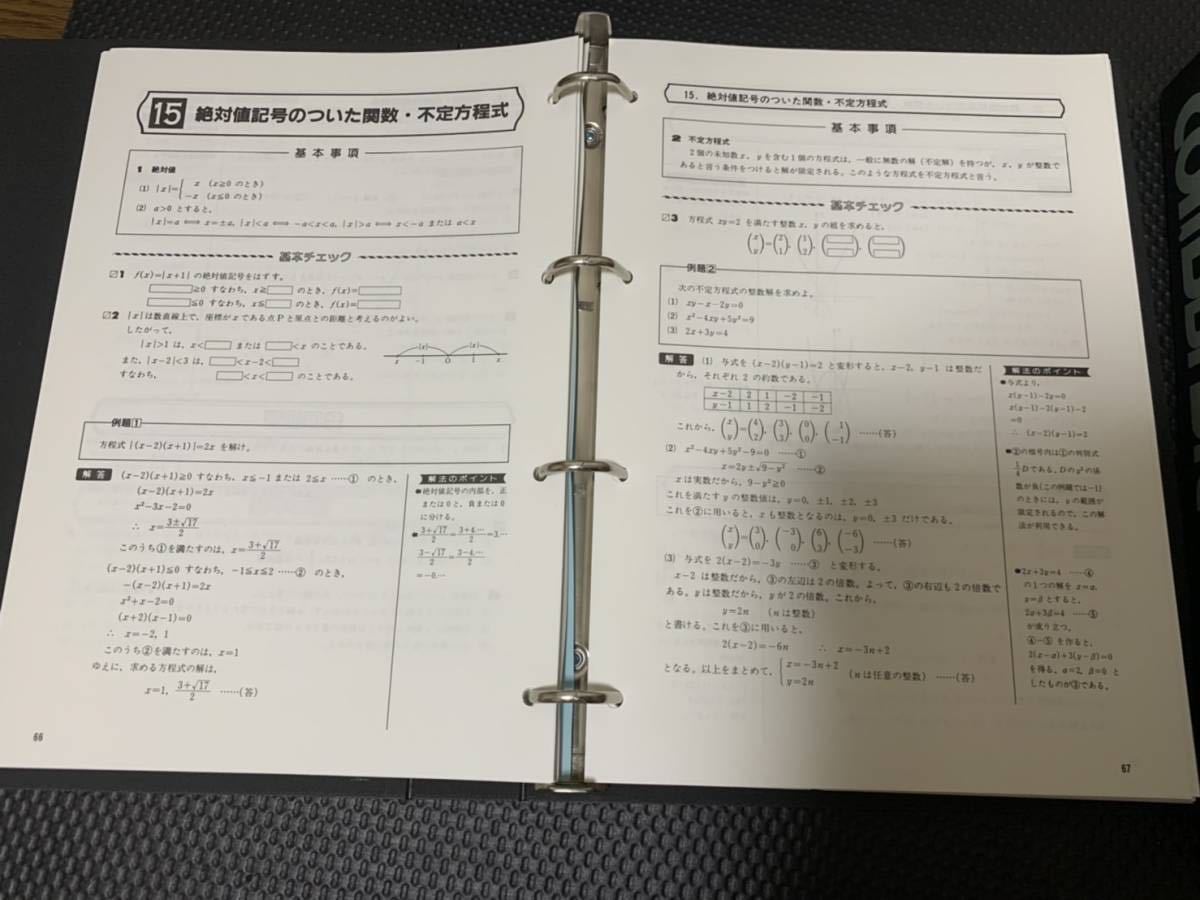 15 絶対値記号のついた関数・不定方程式
基本事項
1 絶対値
(1) |x|={ x (x≧0 のとき)
−x (x≦0 のとき)
(2) a>0 とすると,
|x|=a ⟺ x=±a, |x|<a ⟺ −a<x<a, |x|>a ⟺ x<−a または a<x
基本チェック
1 f(x)=|x+1| の絶対値記号をはずす。
≧0 すなわち, x≧ のとき, f(x)=
≦0 すなわち, x≦ のとき, f(x)=
2 |x|は数直線上で, 座標がxである点Pと原点との距離と考えるのがよい。
したがって,
|x|>1 は, x< または <x のことである。
また, |x−2|<3 は, <x−2<
すなわち, <x< のことである。
|x| |x|
x −1 O 1 x
例題1
方程式 |(x−2)(x+1)|=2x を解け。
解答 (x−2)(x+1)≧0 すなわち, x≦−1 または 2≦x ……① のとき,
(x−2)(x+1)=2x
x²−3x−2=0
∴ x=(3±√17)/2
このうち①を満たすのは, x=(3+√17)/2
(x−2)(x+1)≦0 すなわち, −1≦x≦2 ……② のとき,
−(x−2)(x+1)=2x
x²+x−2=0
(x+2)(x−1)=0
∴ x=−2, 1
このうち②を満たすのは, x=1
ゆえに, 求める方程式の解は,
x=1, (3+√17)/2 ……(答)
解法のポイント
●絶対値記号の内部を, 正
または0と, 負または0
に分ける。
●(3+√17)/2=(3+4.…)/2=3.…
(3−√17)/2=(3−4.…)/2
=−0.…
66
15. 絶対値記号のついた関数・不定方程式
基本事項
2 不定方程式
2個の未知数x, yを含む1個の方程式は, 一般に無数の解(不定解)を持つが, x, yが整数で
あると言う条件をつけると解が限定される。このような方程式を不定方程式と言う。
基本チェック
3 方程式 xy=2 を満たす整数x, yの組を求めると,
(x y)=(2 1), (1 2), ( ), ( )
例題2
次の不定方程式の整数解を求めよ。
(1) xy−x−2y=0
(2) x²−4xy+5y²=9
(3) 2x+3y=4
解答 (1) 与式を (x−2)(y−1)=2 と変形すると, x−2, y−1 は整数だ
から, それぞれ2の約数である。
x−2 2 1 −2 −1
y−1 1 2 −1 −2
これから, (x y)=(4 2), (3 3), (0 0), (1 −1) ……(答)
(2) x²−4xy+5y²−9=0 ……①
x=2y±√9−y² ……②
xは実数だから, 9−y²≧0
これを満たすyの整数値は, y=0, ±1, ±2, ±3
これを②に用いると, xも整数となるのは, y=0, ±3 だけである。
(x y)=(3 0), (−3 0), (6 3), (−6 −3) ……(答)
(3) 与式を 2(x−2)=−3y ……③ と変形する。
x−2 は整数だから, ③の左辺は2の倍数。よって, ③の右辺も2の倍数で
ある。yは整数だから, yが2の倍数。これから,
y=2n (nは整数)
と書ける。これを③に用いると,
2(x−2)=−6n ∴ x=−3n+2
となる。以上をまとめて, { x=−3n+2
y=2n (nは任意の整数) ……(答)
解法のポイント
●与式より,
x(y−1)−2y=0
x(y−1)−2(y−1)−2
=0
∴ (x−2)(y−1)=2
●②の根号内は①の判別式
1/4 Dである。Dのy²の係
数が負(この例題では−1)
のときには, yの範囲が
限定されるので, この解
法が利用できる。
●2x+3y=4 ……④
の1つの解をx=α,
y=βとすると,
2α+3β=4 ……⑤
が成り立つ。
④−⑤ を作ると,
2(x−α)+3(y−β)=0
を得る。α=2, β=0 と
したものが③である。
67